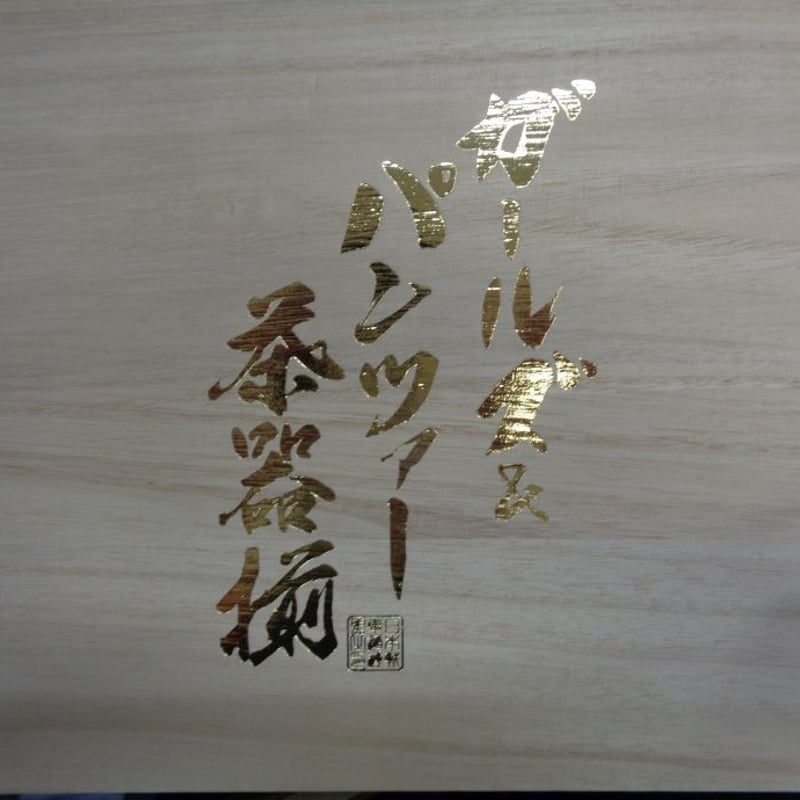 ガールズ&
パンツァー
茶器揃